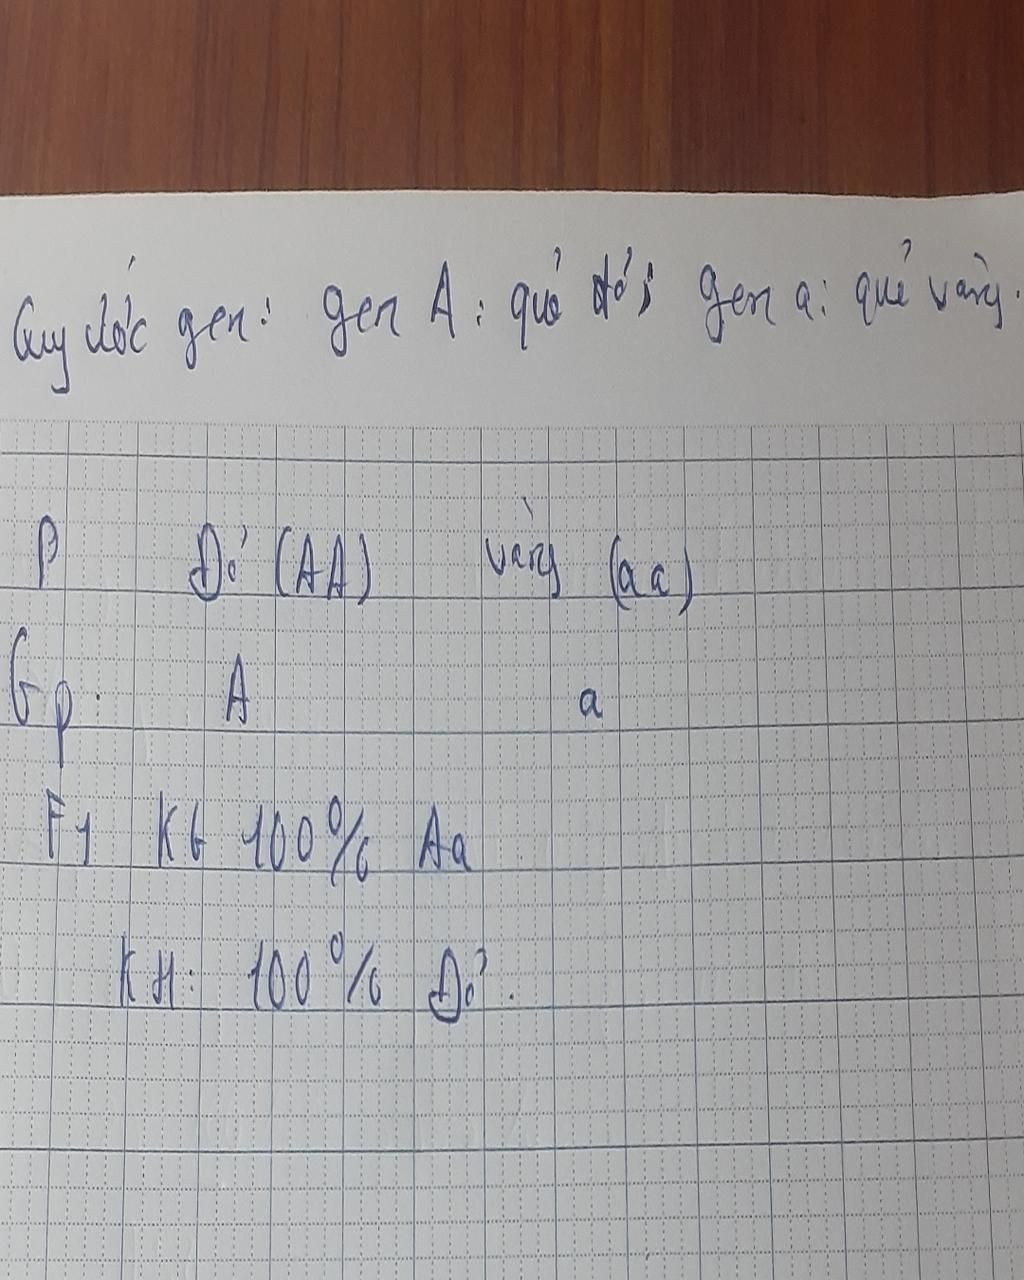 Quy ước gen: gen A: quả đỏ; gen a: quả vàng.
P Đỏ (AA) vàng (aa)
Gp. A a
F1 KG 100% Aa
KH: 100% Đỏ.